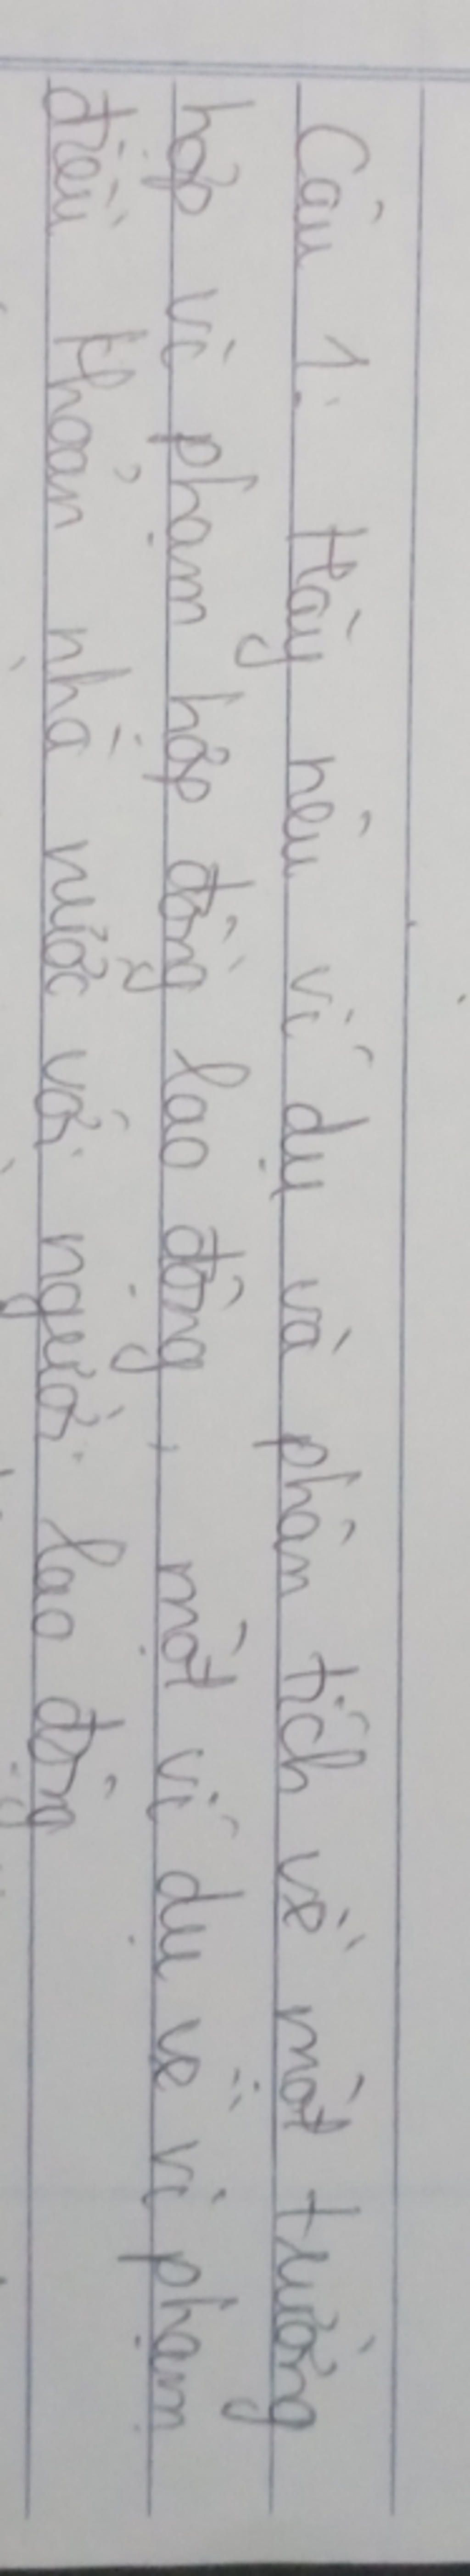 Câu 1. Hãy nêu ví dụ và phân tích về một trường
hợp vi phạm hợp đồng lao động, một ví dụ về vi phạm
điều khoản nhà nước với người lao động